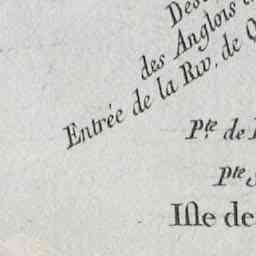 des Anglois
Entrée de la Riv. de
Pte. de
Pte
Isle de